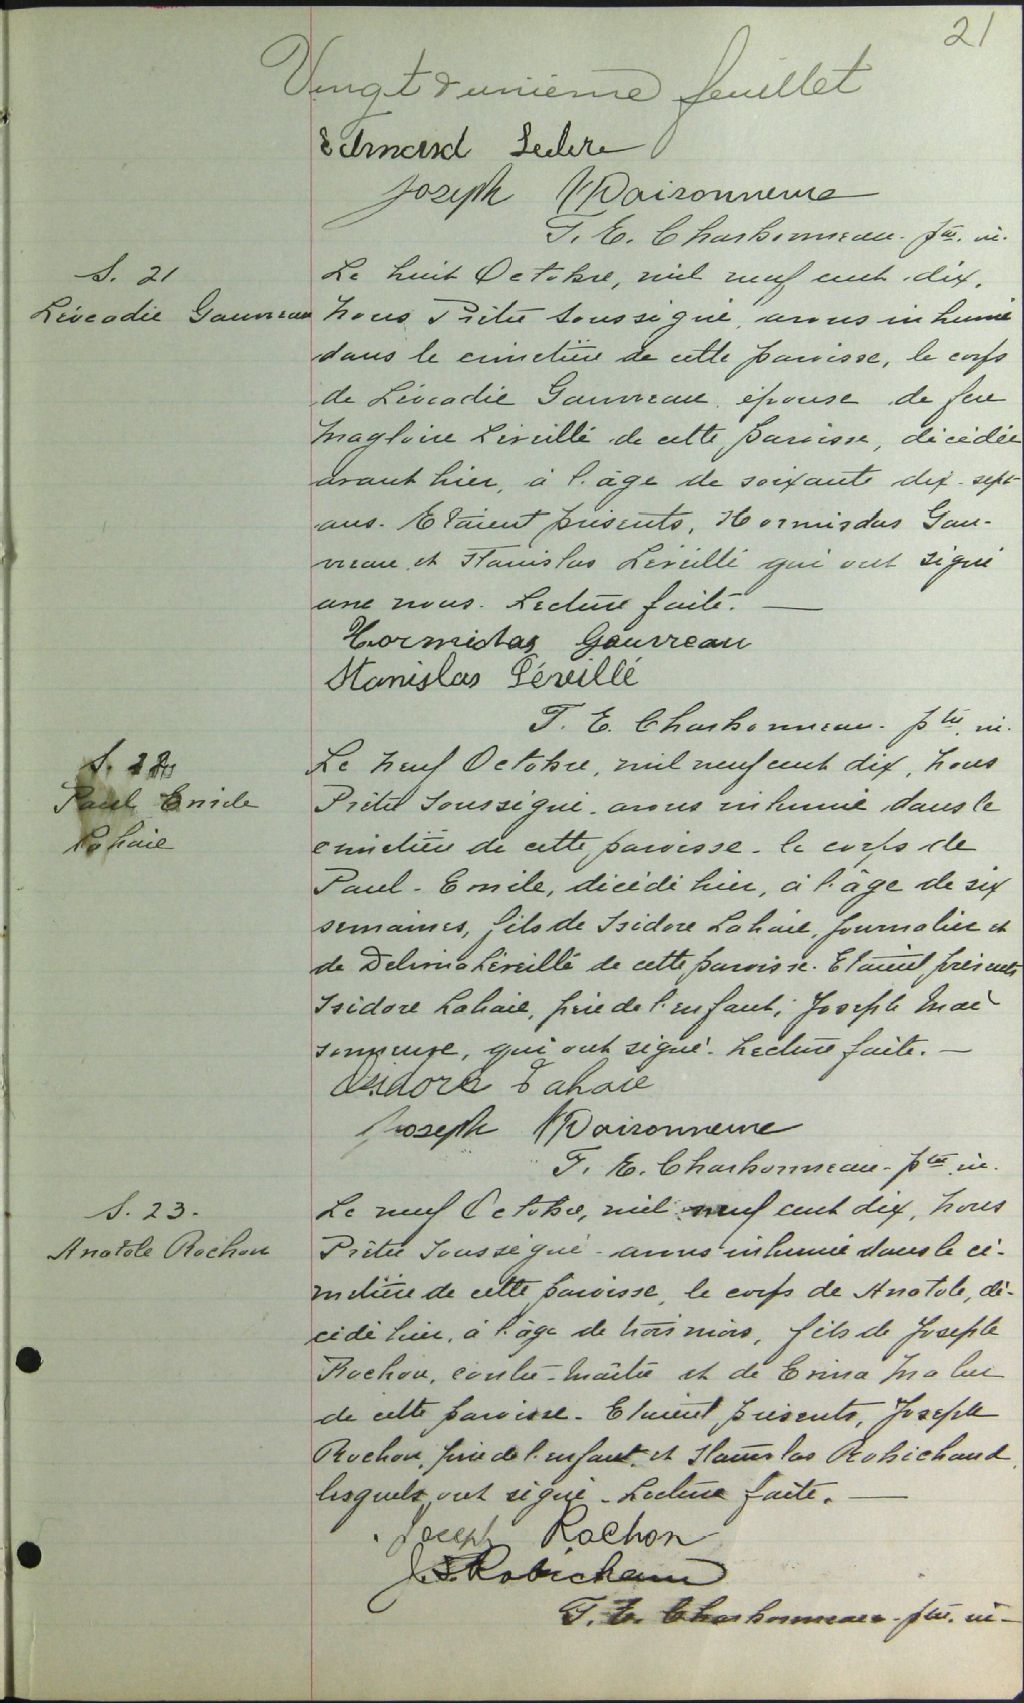 21
Vingt & unième feuillet
Edmond Leclerc
Joseph Maisonneuve
F. E. Charbonneau. ptre. vic.
S. 21
Léocadie Gauvreau
Le huit Octobre, mil neuf cent dix,
nous Prêtre soussigné, avons inhumé
dans le cimetière de cette paroisse, le corps
de Léocadie Gauvreau, épouse de feu
Magloire Léveillé de cette paroisse, décédée
avant hier, à l'âge de soixante dix-sept
ans. Etaient présents, Hormisdas Gau-
vreau et Stanislas Léveillé qui ont signé
avec nous. Lecture faite. —
Hormidas Gauvreau
Stanislas Léveillé
F. E. Charbonneau. ptre. vic.
S. 22
Paul Emile
Lahaie
Le neuf Octobre, mil neuf cent dix, nous
Prêtre soussigné. avons inhumé dans le
cimetière de cette paroisse. le corps de
Paul-Emile, décédé hier, à l'âge de six
semaines, fils de Isidore Lahaie, journalier et
de Delima Léveillé de cette paroisse. Etaient présents
Isidore Lahaie, père de l'enfant, Joseph Mai
sonneuve, qui ont signé. Lecture faite. —
Isidore Lahaie
Joseph Maisonneuve
F. E. Charbonneau. ptre. vic.
S. 23.
Anatole Rochon
Le neuf Octobre, mil neuf cent dix, nous
Prêtre soussigné. avons inhumé dans le ci-
metière de cette paroisse, le corps de Anatole, dé-
cédé hier, à l'âge de trois mois, fils de Joseph
Rochon, contre-maître et de Erina
de cette paroisse. Etaient présents, Joseph
Rochon, père de l'enfant, et Stanislas Robichaud,
lesquels ont signé. Lecture faite. —
Joseph Rochon
J. S. Robichaud
F. E. Charbonneau. ptre. vic.